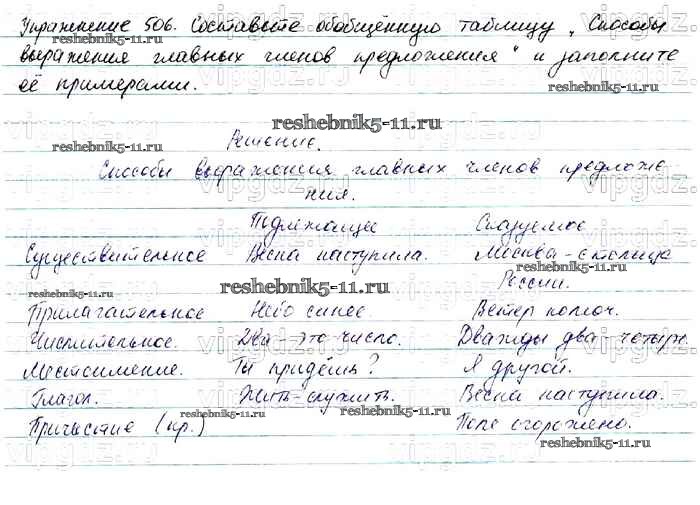 Упражнение 506. Составьте обобщённую таблицу „Способы
выражения главных членов предложения" и заполните
её примерами.
Решение.
Способы выражения главных членов предложе
ния.
Подлежащее Сказуемое
Существительное Весна наступила. Москва - столица
России.
Прилагательное Небо синее. Ветер колюч.
Числительное. Два - это число. Дважды два - четыре.
Местоимение. Ты придёшь? Я другой.
Глагол. Жить - служить. Весна наступила.
Причастие (кр.) Поле огорожено.
reshebnik5-11.ru
vipgdz.ru